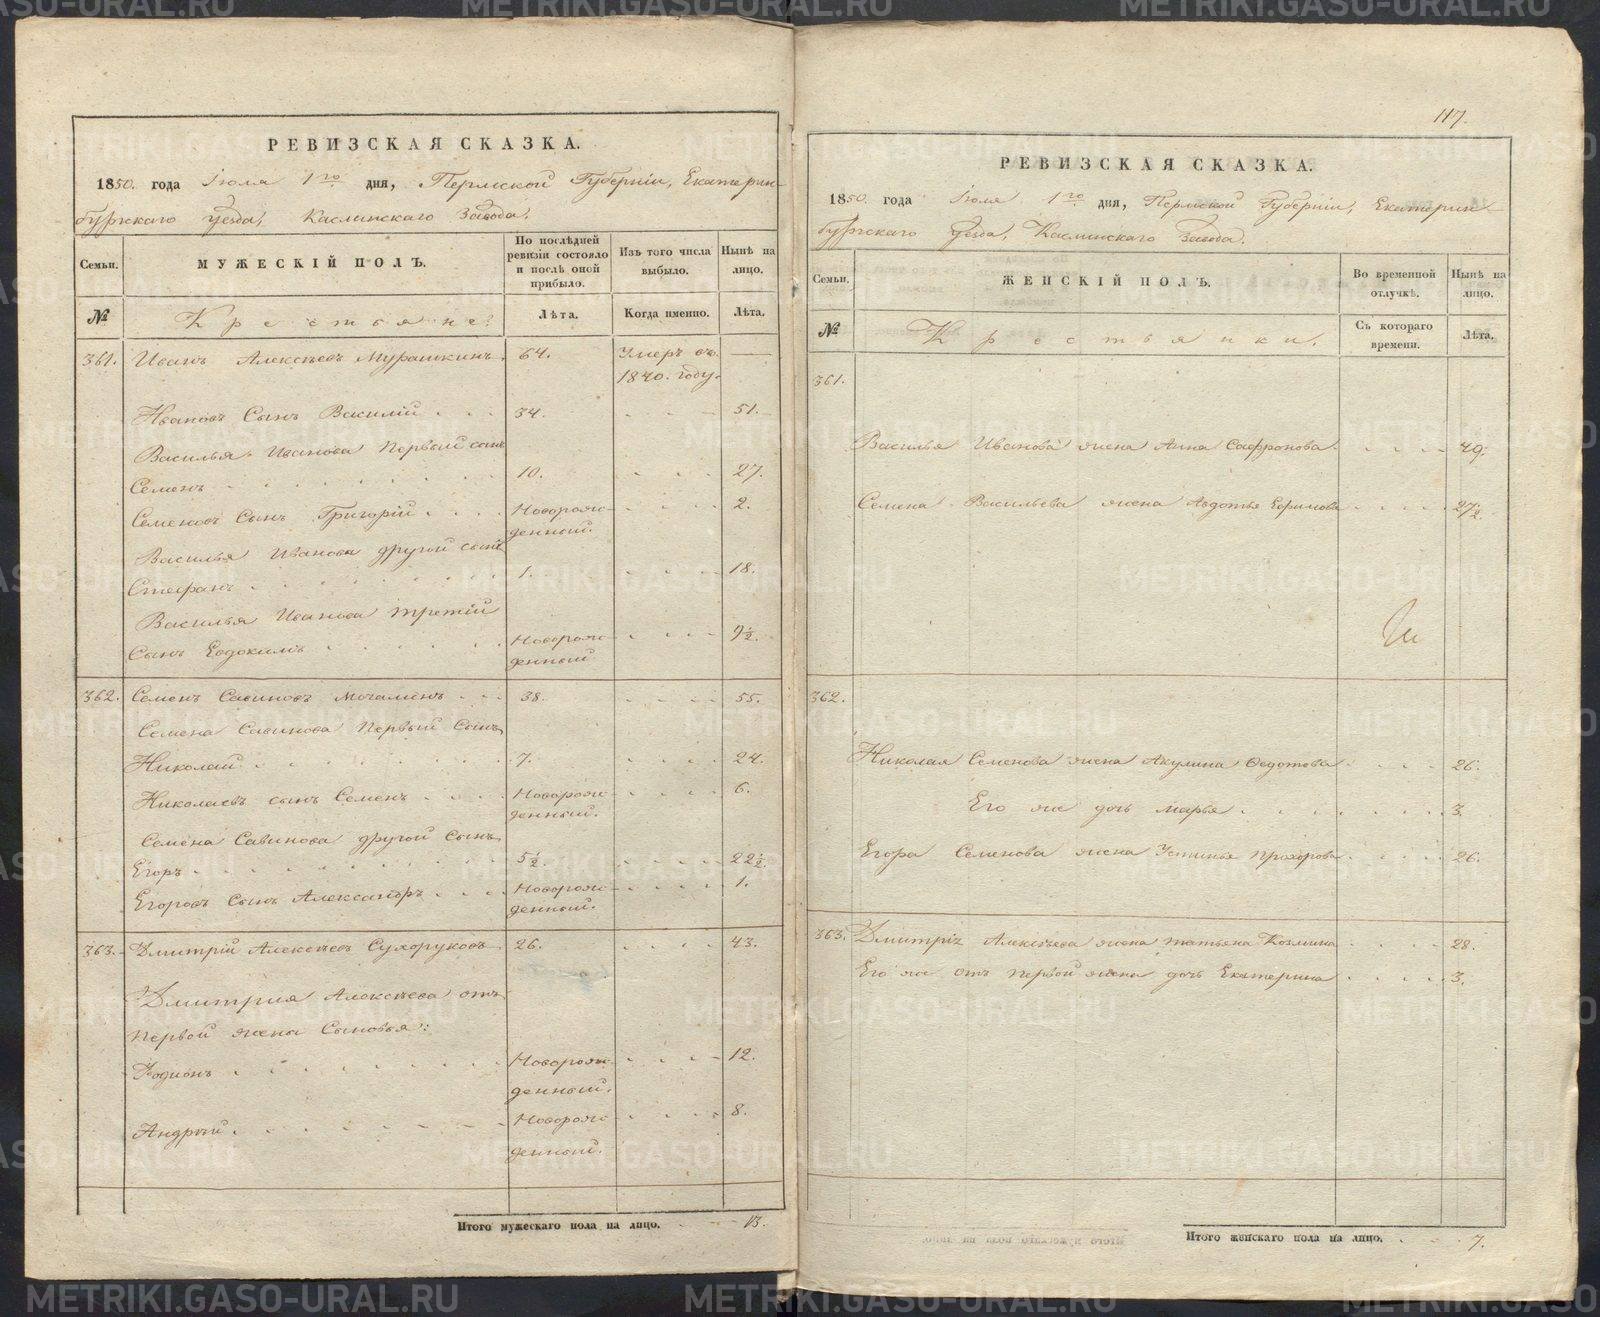 РЕВИЗСКАЯ СКАЗКА.
1850. года Іюля 1го дня, Пермской Губерніи, Екатерин-
бургскаго уезда, Каслинскаго Завода.
Семьи. МУЖЕСКІЙ ПОЛЪ. По послѣдней ревизіи состояло и послѣ оной прибыло. Изъ того числа выбыло. Нынѣ на лицо.
№ Крестьяне: Лѣта. Когда именно. Лѣта.
361. Иванъ Алексѣевъ Мурашкинъ. 64. Умеръ въ —
1840. году.
Ивановъ Сынъ Василій 34. 51.
Василья Иванова Первый сынъ
Семенъ 10. 27.
Семеновъ Сынъ Григорій Новорож- 2.
денный.
Василья Иванова другой сынъ
Стефанъ 1. 18.
Василья Иванова третій
Сынъ Евдокимъ Новорож- 9½.
денный
362. Семенъ Савиновъ Мочалинъ 38. 55.
Семена Савинова Первый Сынъ
Николай 7. 24.
Николаевъ сынъ Семенъ Новорож- 6.
денный.
Семена Савинова другой Сынъ
Егоръ 5½. 22½.
Егоровъ Сынъ Александръ Новорож- 1.
денный.
363. Дмитрій Алексѣевъ Сухоруковъ 26. 43.
Дмитрія Алексѣева отъ
Первой жены Сыновья:
Родіонъ Новорож- 12.
денный.
Андрей Новорож- 8.
денный.
Итого мужескаго пола на лицо. 13.
117.
РЕВИЗСКАЯ СКАЗКА.
1850. года Іюля 1го дня, Пермской Губерніи, Екатерин-
бургскаго Уезда, Каслинскаго Завода.
Семьи. ЖЕНСКІЙ ПОЛЪ. Во временной отлучкѣ. Нынѣ на лицо.
№ Крестьянки. Съ котораго времени. Лѣта.
361.
Василья Иванова жена Анна Сафронова 49.
Семена Васильева жена Авдотья Ефимова 27½.
362.
Николая Семенова жена Акулина Федотова 26.
Его же дочь Марья 3.
Егора Семенова жена Устинья Прохорова 26.
363. Дмитрія Алексѣева жена Татьяна Козмина 28.
Его же отъ первой жены дочь Екатерина 3.
Итого женскаго пола на лицо. 7.
METRIKI.GASO-URAL.RU